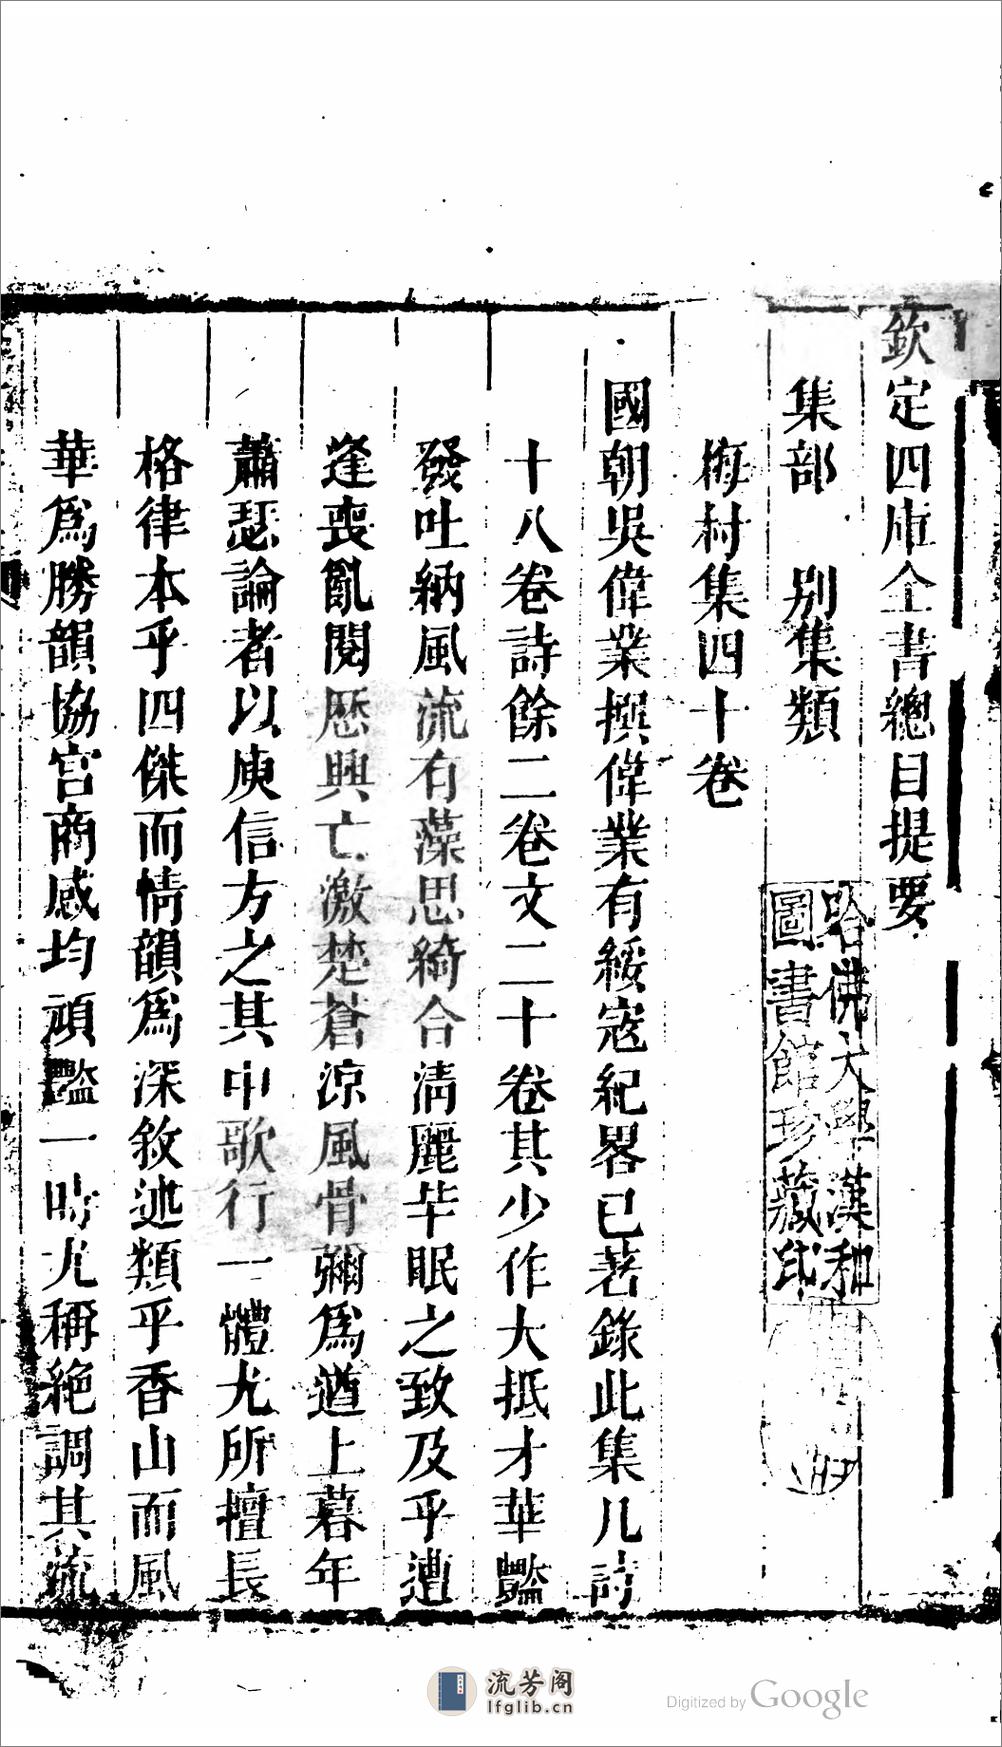 欽定四庫全書總目提要
集部　別集類
梅村集四十卷
國朝吳偉業撰偉業有綏寇紀畧已著錄此集凡詩
十八卷詩餘二卷文二十卷其少作大抵才華豔
發吐納風流有藻思綺合清麗芊眠之致及乎遭
逢喪亂閱歷興亡激楚蒼涼風骨彌爲遒上暮年
蕭瑟論者以庾信方之其中歌行一體尤所擅長
格律本乎四傑而情韻爲深敘述類乎香山而風
華爲勝韻協宮商感均頑豔一時尤稱絕調其流
哈佛大學漢和
圖書館珍藏印
流芳阁
lfglib.cn
Digitized by Google